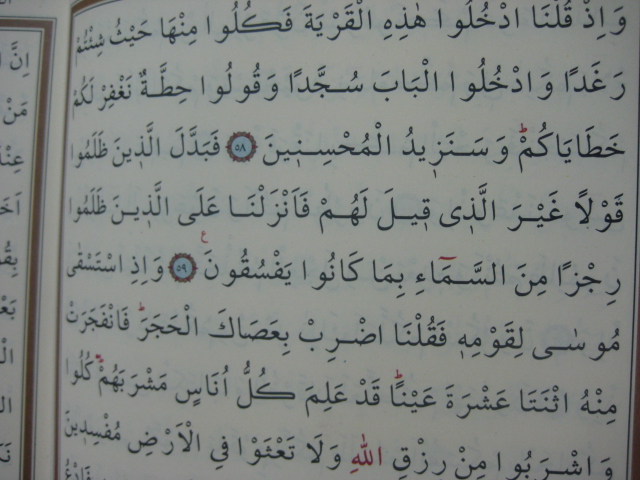 وَاِذْ قُلْنَا ادْخُلُوا هٰذِهِ الْقَرْيَةَ فَكُلُوا مِنْهَا حَيْثُ شِئْتُمْ
رَغَدًا وَادْخُلُوا الْبَابَ سُجَّدًا وَقُولُوا حِطَّةٌ نَغْفِرْ لَكُمْ
خَطَايَاكُمْ وَسَنَزٖيدُ الْمُحْسِنٖينَ ٥٨ فَبَدَّلَ الَّذٖينَ ظَلَمُوا
قَوْلًا غَيْرَ الَّذٖى قٖيلَ لَهُمْ فَاَنْزَلْنَا عَلَى الَّذٖينَ ظَلَمُوا
رِجْزًا مِنَ السَّمَٓاءِ بِمَا كَانُوا يَفْسُقُونَ ع ٥٩ وَاِذِ اسْتَسْقٰى
مُوسٰى لِقَوْمِهٖ فَقُلْنَا اضْرِبْ بِعَصَاكَ الْحَجَرَ فَانْفَجَرَتْ
مِنْهُ اثْنَتَا عَشْرَةَ عَيْنًا قَدْ عَلِمَ كُلُّ اُنَاسٍ مَشْرَبَهُمْ كُلُوا
وَاشْرَبُوا مِنْ رِزْقِ اللّٰهِ وَلَا تَعْثَوْا فِي الْاَرْضِ مُفْسِدٖينَ
اِنَّ
مَنْ